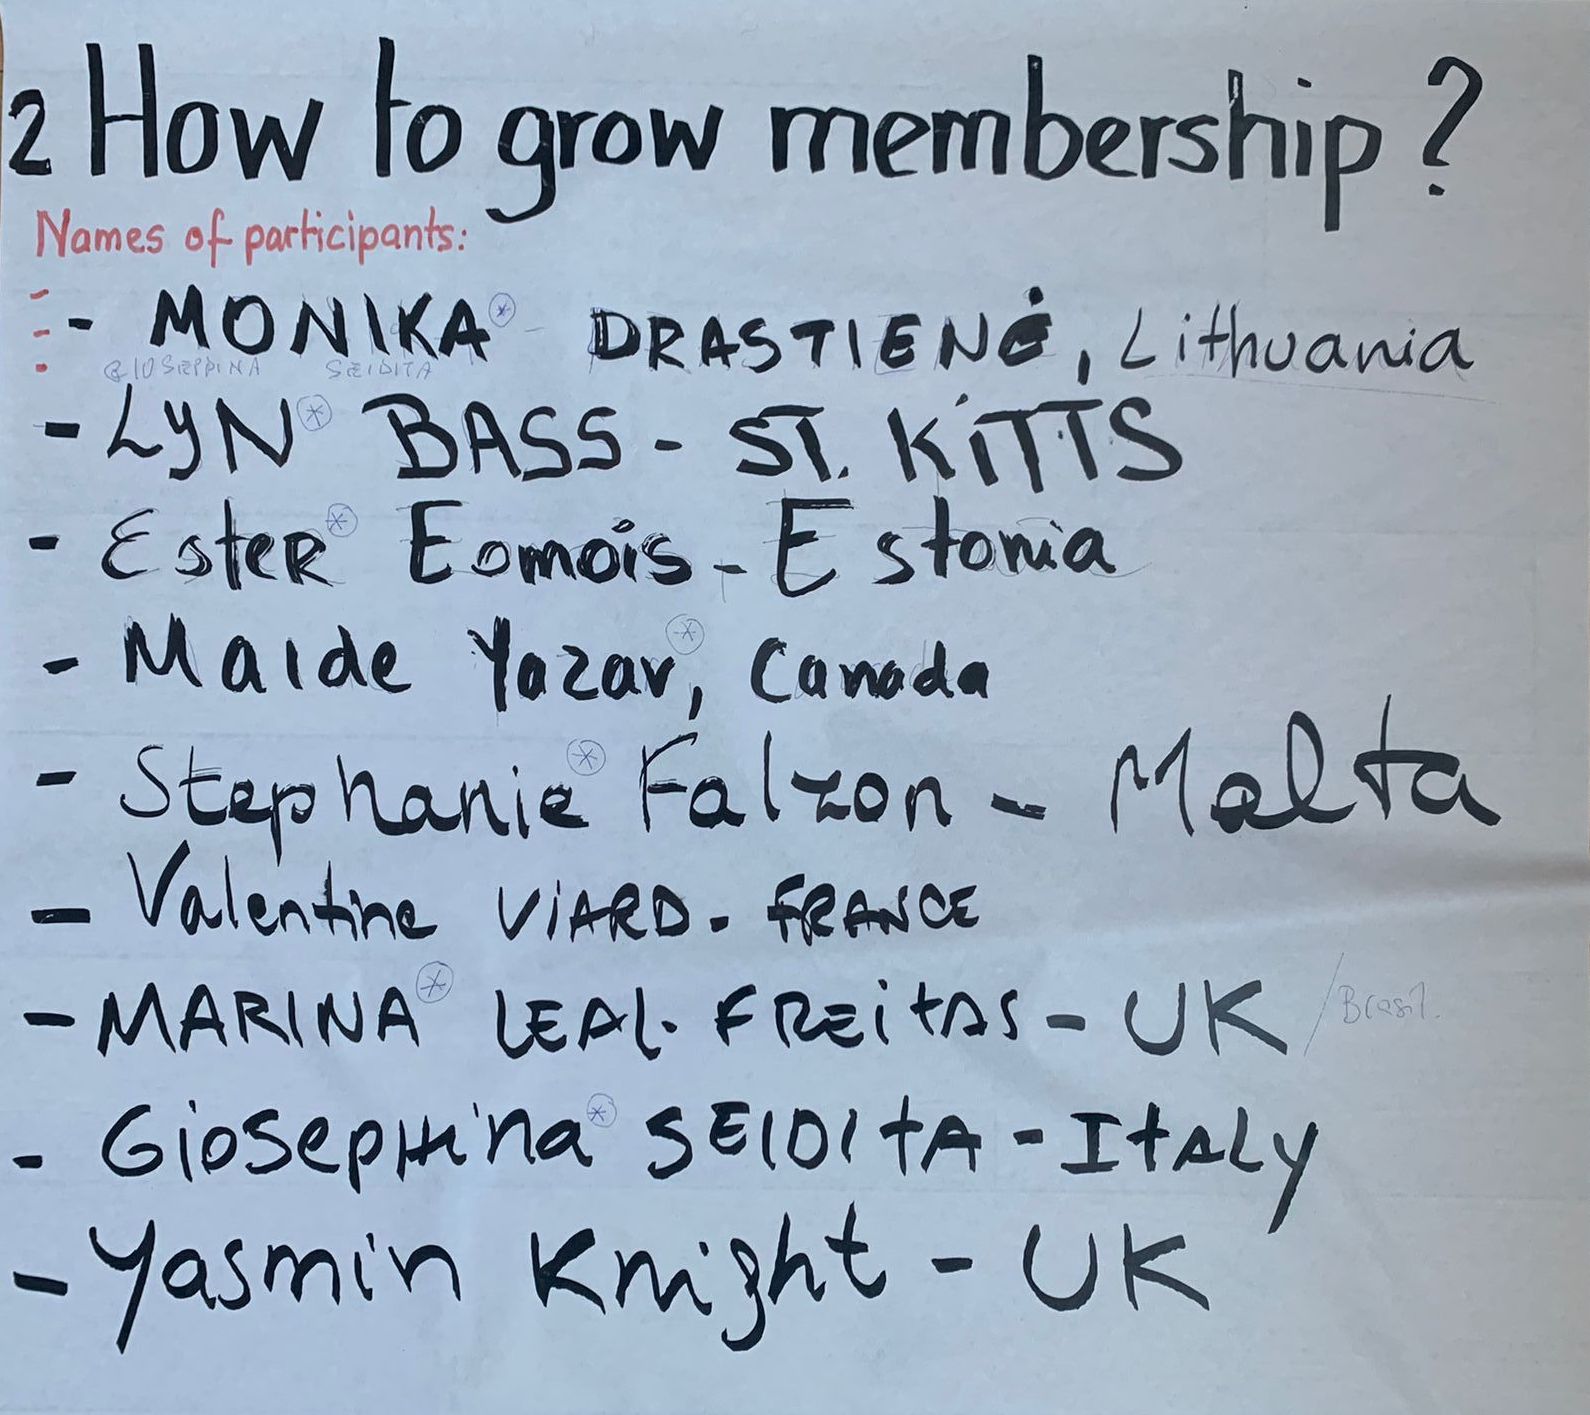 2 How to grow membership?
Names of participants:
- MONIKA DRASTIENĖ, Lithuania
GIOSEPPINA SEIDITA
- LYN BASS - ST. KITTS
- Ester Eomois - Estonia
- Maide Yazar, Canada
- Stephanie Falzon - Malta
- Valentine VIARD - FRANCE
- MARINA LEAL FREITAS - UK / Brasil.
- Giosephina SEIDITA - ITALY
- Yasmin Knight - UK